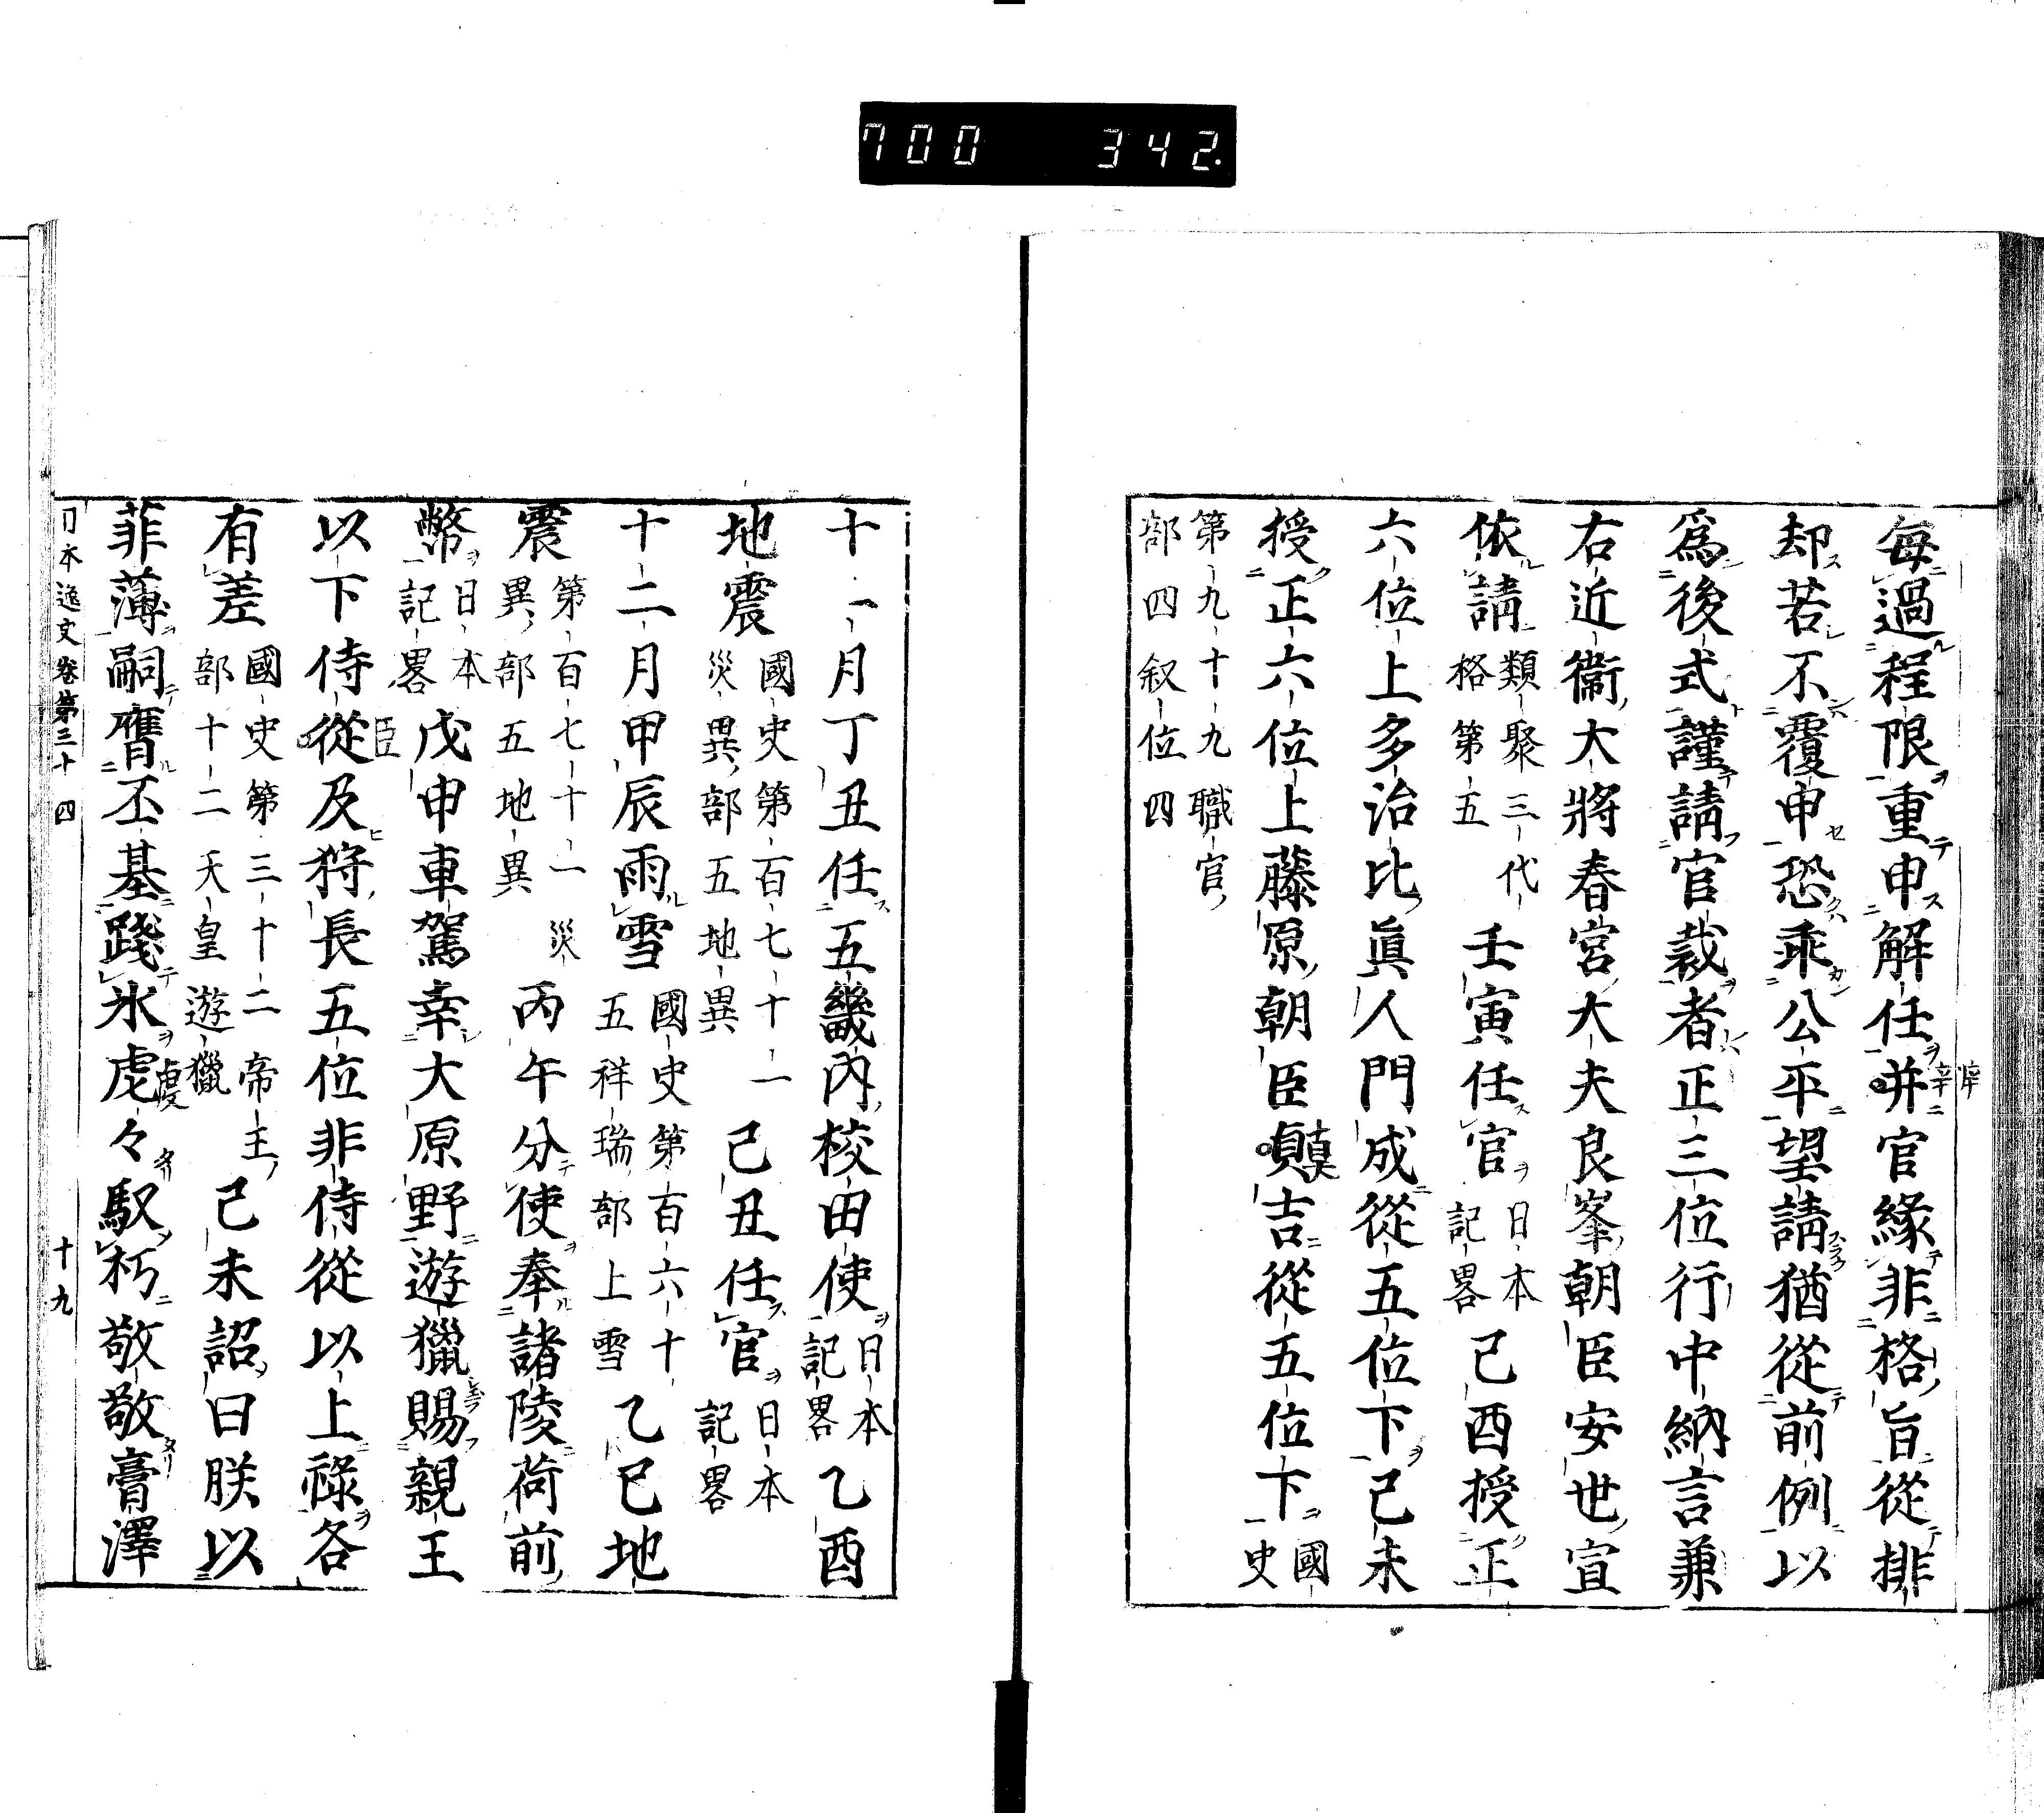 700 342
每過程限重申解任并官緣非格旨從排
却若不覆申恐乖公平望請猶從前例以
爲後式謹請官裁者正三位行中納言兼
右近衞大將春宮大夫良峯朝臣安世宣
依請類聚三代格第五壬寅任官日本記畧己酉授正
六位上多治比眞人門成從五位下己未
授正六位上藤原朝臣貞吉從五位下國史
第九十九職官部四叙位四
十一月丁丑任五畿內校田使日本記畧乙酉
地震國史第百七十一災異部五地異己丑任官日本記畧
十二月甲辰雨雪國史第百六十五祥瑞部上雪乙巳地
震第百七十一災異部五地異丙午分使奉諸陵荷前
幣日本記畧戊申車駕幸大原野遊獵賜親王
以下侍從及狩長五位非侍從以上祿各
有差國史第三十二帝王部十二天皇遊獵己未詔曰朕以
菲薄嗣膺丕基踐氷虔々馭朽敬敬膏澤
日本逸史卷第三十四 十九